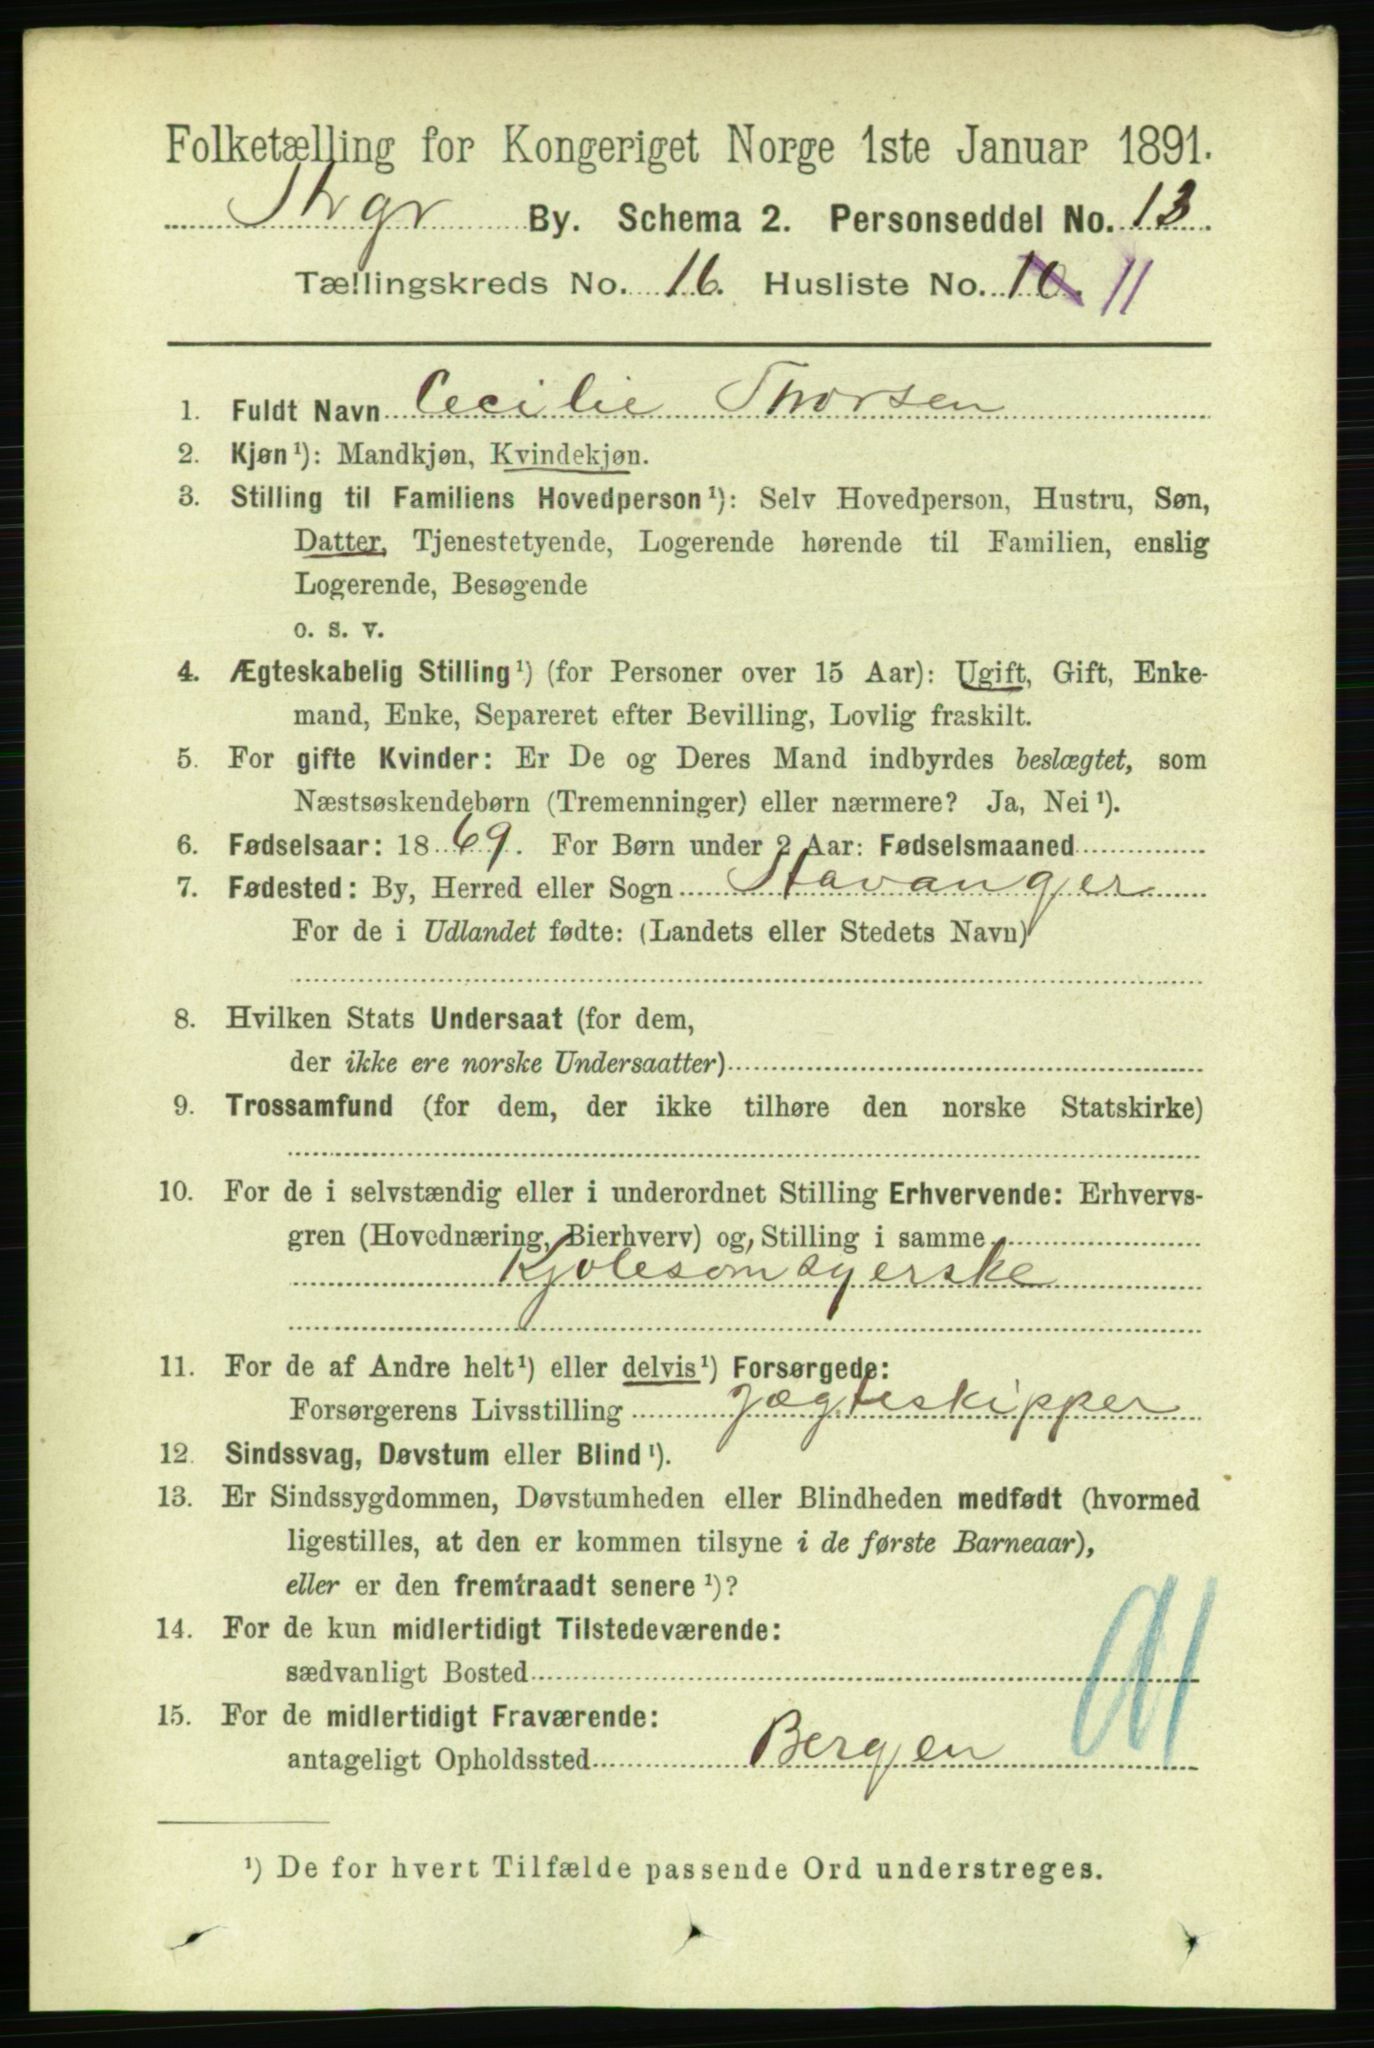 Folketælling for Kongeriget Norge 1ste Januar 1891.
Stvgr By. Schema 2. Personseddel No. 13.
Tællingskreds No. 16. Husliste No. 10. 11
1. Fuldt Navn Cecilie Thorsen
2. Kjøn¹): Mandkjøn, Kvindekjøn.
3. Stilling til Familiens Hovedperson¹): Selv Hovedperson, Hustru, Søn,
Datter, Tjenestetyende, Logerende hørende til Familien, enslig
Logerende, Besøgende
o. s. v.
4. Ægteskabelig Stilling¹) (for Personer over 15 Aar): Ugift, Gift, Enke-
mand, Enke, Separeret efter Bevilling, Lovlig fraskilt.
5. For gifte Kvinder: Er De og Deres Mand indbyrdes beslægtet, som
Næstsøskendebørn (Tremenninger) eller nærmere? Ja, Nei¹).
6. Fødselsaar: 1869. For Børn under 2 Aar: Fødselsmaaned
7. Fødested: By, Herred eller Sogn Stavanger
For de i Udlandet fødte: (Landets eller Stedets Navn)
8. Hvilken Stats Undersaat (for dem,
der ikke ere norske Undersaatter)
9. Trossamfund (for dem, der ikke tilhøre den norske Statskirke)
10. For de i selvstændig eller i underordnet Stilling Erhvervende: Erhvervs-
gren (Hovednæring, Bierhverv) og Stilling i samme
Kjolesomsyerske
11. For de af Andre helt¹) eller delvis¹) Forsørgede:
Forsørgerens Livsstilling Jægteskipper
12. Sindssvag, Døvstum eller Blind¹).
13. Er Sindssygdommen, Døvstumheden eller Blindheden medfødt (hvormed
ligestilles, at den er kommen tilsyne i de første Barneaar),
eller er den fremtraadt senere¹)?
14. For de kun midlertidigt Tilstedeværende:
sædvanligt Bosted
15. For de midlertidigt Fraværende:
antageligt Opholdssted Bergen
¹) De for hvert Tilfælde passende Ord understreges.